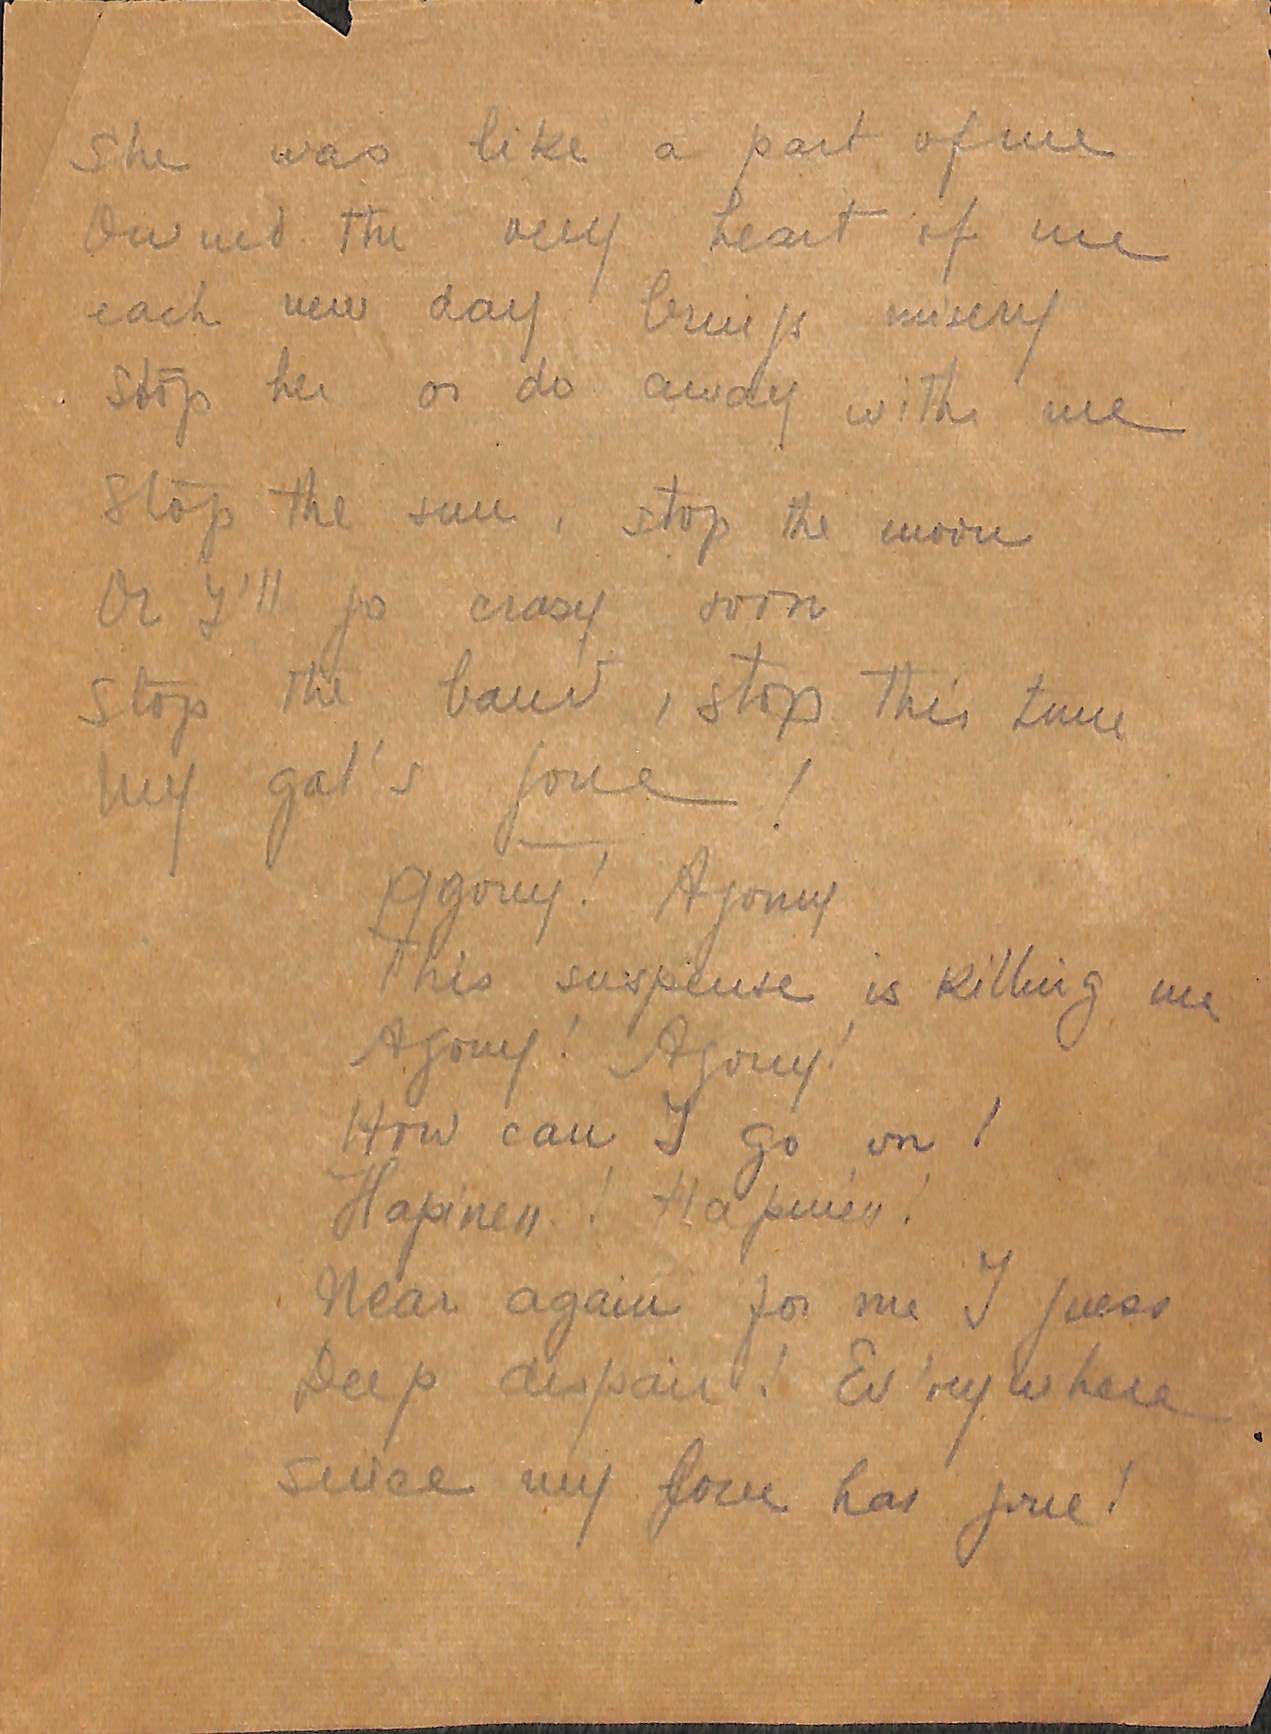 She was like a part of me
Owned the very heart of me
each new day brings misery
Stop her or do away with me
Stop the sun, stop the moon
Or I'll go crasy soon
Stop the band, stop this tune
My gal's gone!
Agony! Agony
This suspense is killing me
Agony! Agony!
How can I go on!
Hapiness! Hapiness!
Near again for me I guess
Deep despair! Ev'rywhere
since my love has gone!